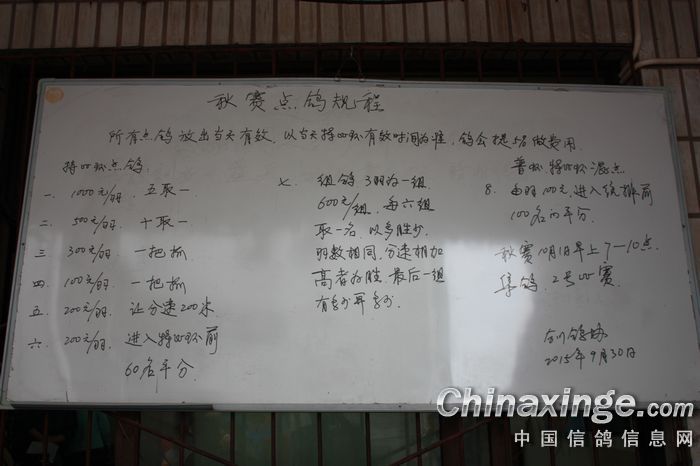 秋赛点鸽规程
所有点鸽放出当天有效，以当天特比环有效时间为准，鸽会提5%做费用。
特比环点鸽：
一、1000元/羽，五取一
二、500元/羽，十取一
三、300元/羽，一把抓
四、100元/羽，一把抓
五、200元/羽，让分速200米
六、200元/羽，进入特比环前
60名平分
七、组鸽3羽为一组
600元/组，每六组
取一名，以多胜少
羽数相同，分速相加
高者为胜，最后一组
有多少算多少
普环特比环混点
8、每羽100元，进入统排前
100名的平分。
秋赛10月1日早上7—10点
集鸽，2号比赛
鸽协
2015年9月30日
Chinaxinge.com
中国信鸽信息网